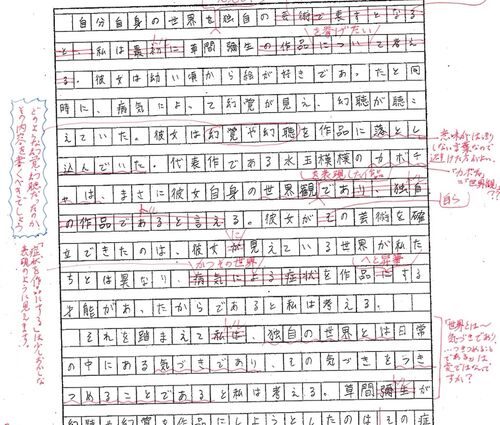 自分自身の世界を独自の芸術で表すとなる
と、私は最初に草間彌生の作品について考え
を挙げたい
る。彼女は幼い頃から絵が好きであったと同
時に、病気によって幻覚が見え、幻聴が聴こ
えていた。彼女は幻覚や幻聴を作品に落とし
込んでいた。代表作である水玉模様のカボチ
を表現した作品
ャは、まさに彼女自身の世界観であり、独自
の作品であると言える。彼女がその芸術を確
立できたのは、彼女が見えている世界が私た
かつその世界
へと昇華
ちとは異なり、病気による症状を作品にする
才能があったからであると私は考える。
それを踏まえて私は、独自の世界とは日常
の中にある気づきであり、その気づきをつき
つめることであると私は考える。草間彌生が
幻聴や幻覚を作品にしようとしたのはその症
意味がはっきり
しない言葉なので
避けた方がよい。
「カボチャ」
=「世界観」
??
自ら
「世界とは〜
気づきであり、
…つきつめる
である」は
変ではない
ですか?
どのような幻覚、幻聴だったのか
その内容を書くべきでしょう
「症状を作品にする」は少しおかしな
表現のように見えます。